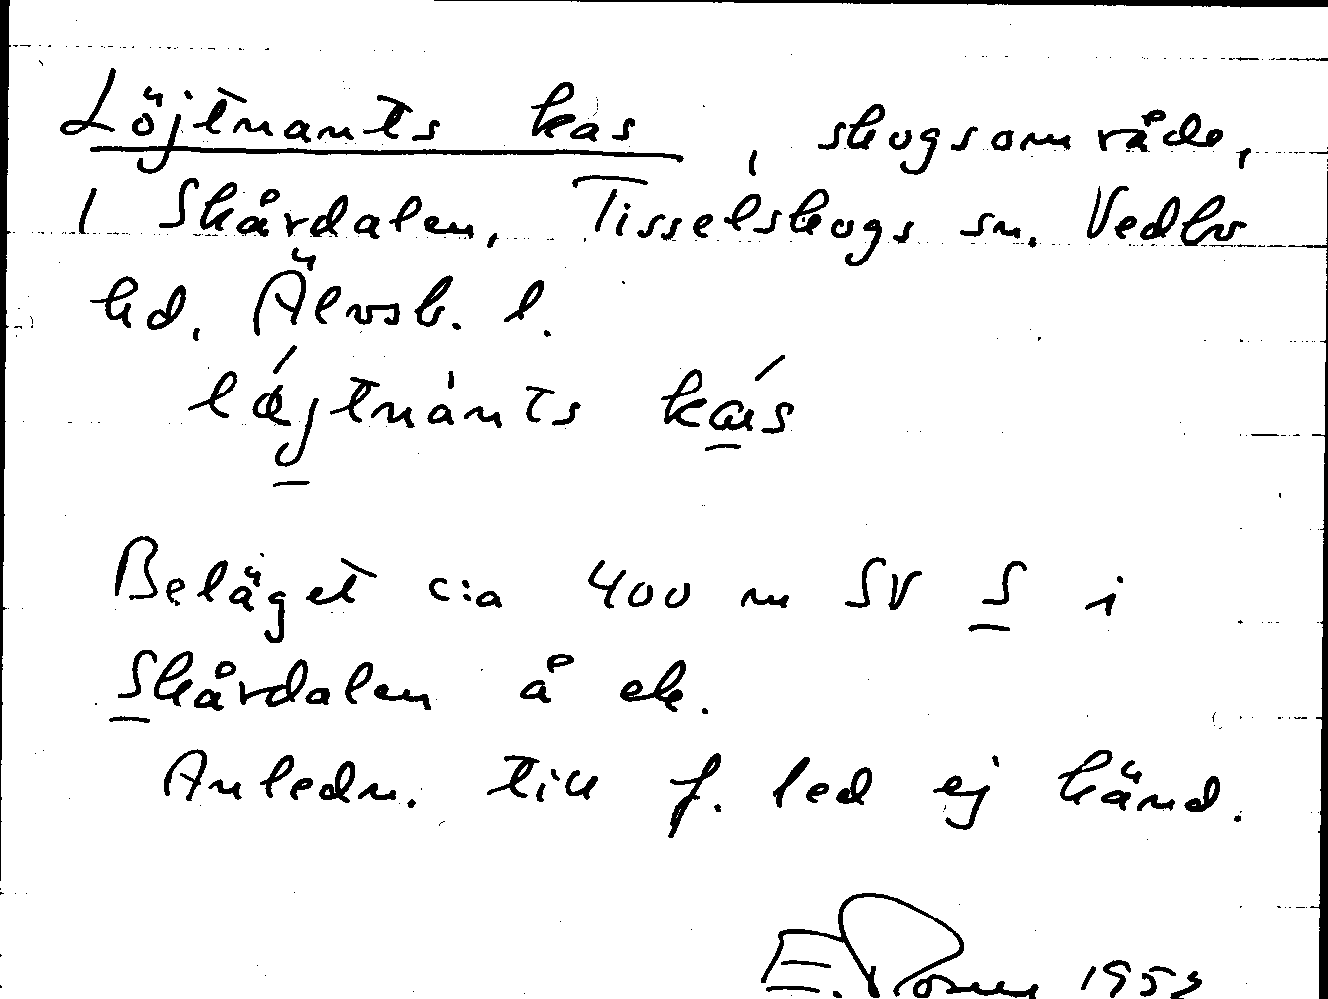 Löjtnants kas, skogsområde,
1 Skårdalen, Tisselskogs sn. Vedbo
hd. Älvsb. l.
Beläget c:a 400 m SV S i
Skårdalen å ek.
Anledn. till f. led ej känd.
E. 1953